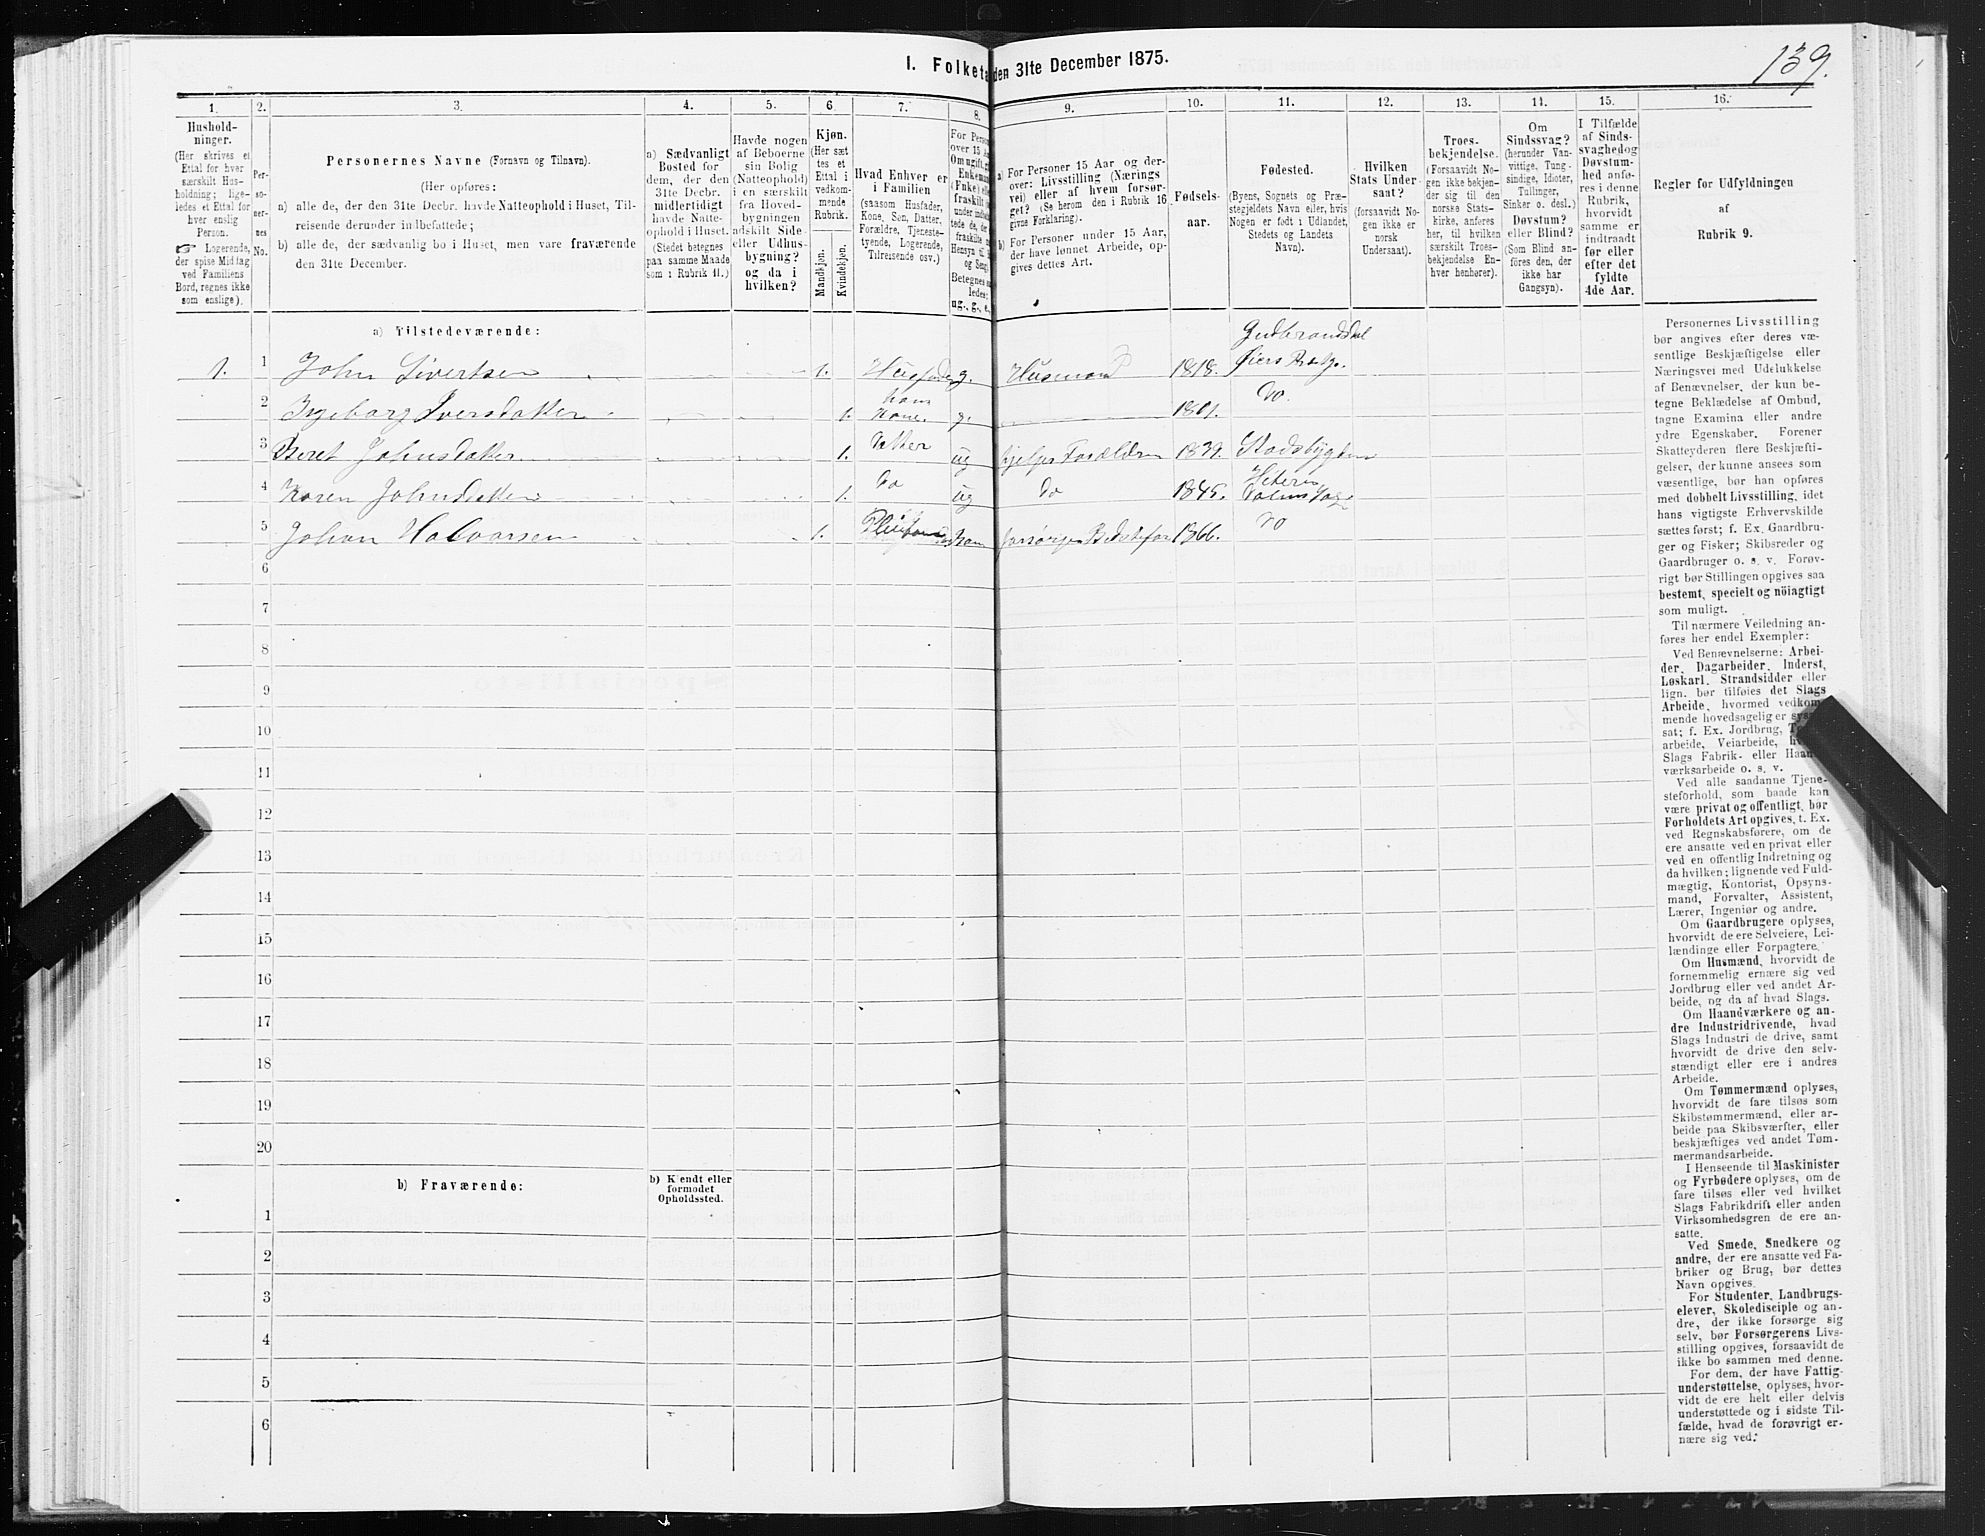 139.
1. Folketæ den 31te December 1875.
1. 2. 3. 4. 5. 6. 7. 8. 9. 10. 11. 12. 13. 14. 15. 16.
Hushold-
ninger.
(Her skrives et
Ettal for hver
særskilt Hus-
holdning; lige-
ledes et Ettal for
hver enslig
Person.
☞ Logerende,
der spise Middag
ved Familiens
Bord, regnes ikke
som enslige).
Per-
so-
ner-
nes
No.
Personernes Navne (Fornavn og Tilnavn).
(Her opføres:
a) alle de, der den 31te Decbr. havde Natteophold i Huset, Til-
reisende derunder indbefattede;
b) alle de, der sædvanlig bo i Huset, men vare fraværende
den 31te December.
a) Sædvanligt
Bosted for
dem, der den
31te Decbr.
midlertidigt
havde Natte-
ophold i Huset.
(Stedet betegnes
paa samme Maade
som i Rubrik 11.)
Havde nogen
af Beboerne
sin Bolig
(Natteophold)
i en særskilt
fra Hoved-
bygningen
adskilt Side-
eller Udhus-
bygning?
og da i
hvilken?
Kjøn.
(Her sæt
tes et
Ettal i
vedkom-
mende
Rubrik.
Mandkjøn.
Kvindekjøn.
Hvad Enhver er
i Familien
(saasom Husfader,
Kone, Søn, Datter,
Forældre, Tjeneste-
tyende, Logerende,
Tilreisende osv.)
For Pers
over 15 A
Om ugift, g
Enkema
(Enke) elle
fraskilt
under indb
tede de, de
fraskilte
Hensyn til
og Seng.
Betegnes s
ledes:
ug., g., e.
a) For Personer 15 Aar og der-
over: Livsstilling (Nærings
vei) eller af hvem forsør-
get? (Se herom den i Rubrik 16
givne Forklaring).
b) For Personer under 15 Aar,
der have lønnet Arbeide, op-
gives dettes Art.
Fødsels-
aar.
Fødested.
(Byens, Sognets og Præ-
stegjeldets Navn eller, hvis
Nogen er født i Udlandet,
Stedets og Landets
Navn).
Hvilken
Stats Under-
saat?
(forsaavidt No-
gen ikke er
norsk
Undersaat).
Troes-
bekjendelse.
(Forsaavidt No-
gen ikke bekjen-
der sig til den
norske Stats-
kirke, anføres
her, til hvilken
særskilt Troes-
bekjendelse En-
hver henhører).
Om
Sindssvag?
(herunder Van-
vittige, Tung-
sindige, Idioter,
Tullinger,
Sinker o. desl.)
Døvstum?
eller Blind?
(Som Blind an-
føres den, der
ikke har
Gangsyn).
I Tilfælde
af Sinds-
svaghed og
Døvstum-
hed anfø-
res i denne
Rubrik,
hvorvidt
samme er
indtraadt
før eller
efter det
fyldte
4de Aar.
Regler for Udfyldningen
af
Rubrik 9.
a) Tilstedeværende:
1. 1 John Sivertsen 1. Husfader g. Husmand 1818. Gudbrandsdal Øiers Prstgj.
2 Ingeborg Iversdatter 1. hans Kone. g. 1801. Do.
3 Beret Johnsdatter 1. Datter ug hjelper Forældre 1839. Stadsbygden
4 Karen Johnsdatter 1. Do ug do 1845.
5 Johan Halvorsen 1. forsørges Bedstefar 1866. Do
6
7
8
9
10
11
12
13
14
15
16
17
18
19
20
b) Fraværende:
b) Kjendt eller
formodet
Opholdssted.
1
2
3
4
5
6
Personernes Livsstilling
bør angives efter deres væ-
sentlige Beskjæftigelse eller
Næringsvei med Udelukkelse
af Benævnelser, der kun be-
tegne Beklædelse af Ombud,
tagne Examina eller andre
ydre Egenskaber. Forener
Skatteyderen flere Beskjæfti-
gelser, der kunne ansees som
væsentlige, bør han opføres
med dobbelt Livsstilling, idet
hans vigtigste Erhvervskilde
sættes først; f. Ex. Gaardbru-
ger og Fisker; Skibsreder og
Gaardbruger o. s. v. Forøv-
rigt bør Stillingen opgives saa
bestemt, specielt og nöiagtigt
som muligt.
Til nærmere Veiledning an-
føres her endel Exempler:
Ved Benævnelserne: Arbei-
der, Dagarbeider, Inderst,
Løskarl, Strandsidder eller
lign. bør tilføies det Slags
Arbeide, hvormed vedkom-
mende hovedsagelig er syssel
sat; f. Ex. Jordbrug, T
arbeide, Veiarbeide, h
Slags Fabrik- eller Haand
værksarbeide o. s. v.
Ved alle saadanne Tjene-
steforhold, som baade kan
være privat og offentligt, bør
Forholdets Art opgives, t. Ex.
ved Regnskabsførere, om de
ere ansatte ved en privat eller
ved en offentlig Indretning og
da hvilken; lignende ved Fuld-
mægtig, Kontorist, Opsyns-
mand, Forvalter, Assistent,
Lærer, Ingeniør og andre.
Om Gaardbrugere oplyses,
hvorvidt de ere Selveiere, Lei-
lændinge eller Forpagtere.
Om Husmænd, hvorvidt de
fornemmelig ernære sig ved
Jordbrug eller ved andet Ar-
beide, og da af hvad Slags.
Om Haandværkere og an-
dre Industridrivende, hvad
Slags Industri de drive, samt
hvorvidt de drive den selv-
stændigt eller ere i andres
Arbeide.
Om Tømmermænd oplyses,
hvorvidt de fare tilsøs som
Skibstømmermænd, eller ar-
beide paa Skibsværfter, eller
beskjæftiges ved andet Tøm-
mermandsarbeide.
I Henseende til Maskinister
og Fyrbødere oplyses, om de
fare tilsøs eller ved hvilket
Slags Fabrikdrift eller anden
Virksomhedsgren de ere an-
satte.
Ved Smede, Snedkere og
andre, der ere ansatte ved Fa-
briker og Brug, bør dettes
Navn opgives.
For Studenter, Landbrugs-
elever, Skoledisciple og an-
dre, der ikke forsørge sig
selv, bør Forsørgerens Livs-
stilling opgives, forsaavidt de
ikke bo sammen med denne.
For dem, der have Fattig-
understøttelse, oplyses, hvor-
vidt de ere helt eller delvis
understøttede og i sidste Til-
fælde, hvad de forøvrigt er-
nære sig ved.